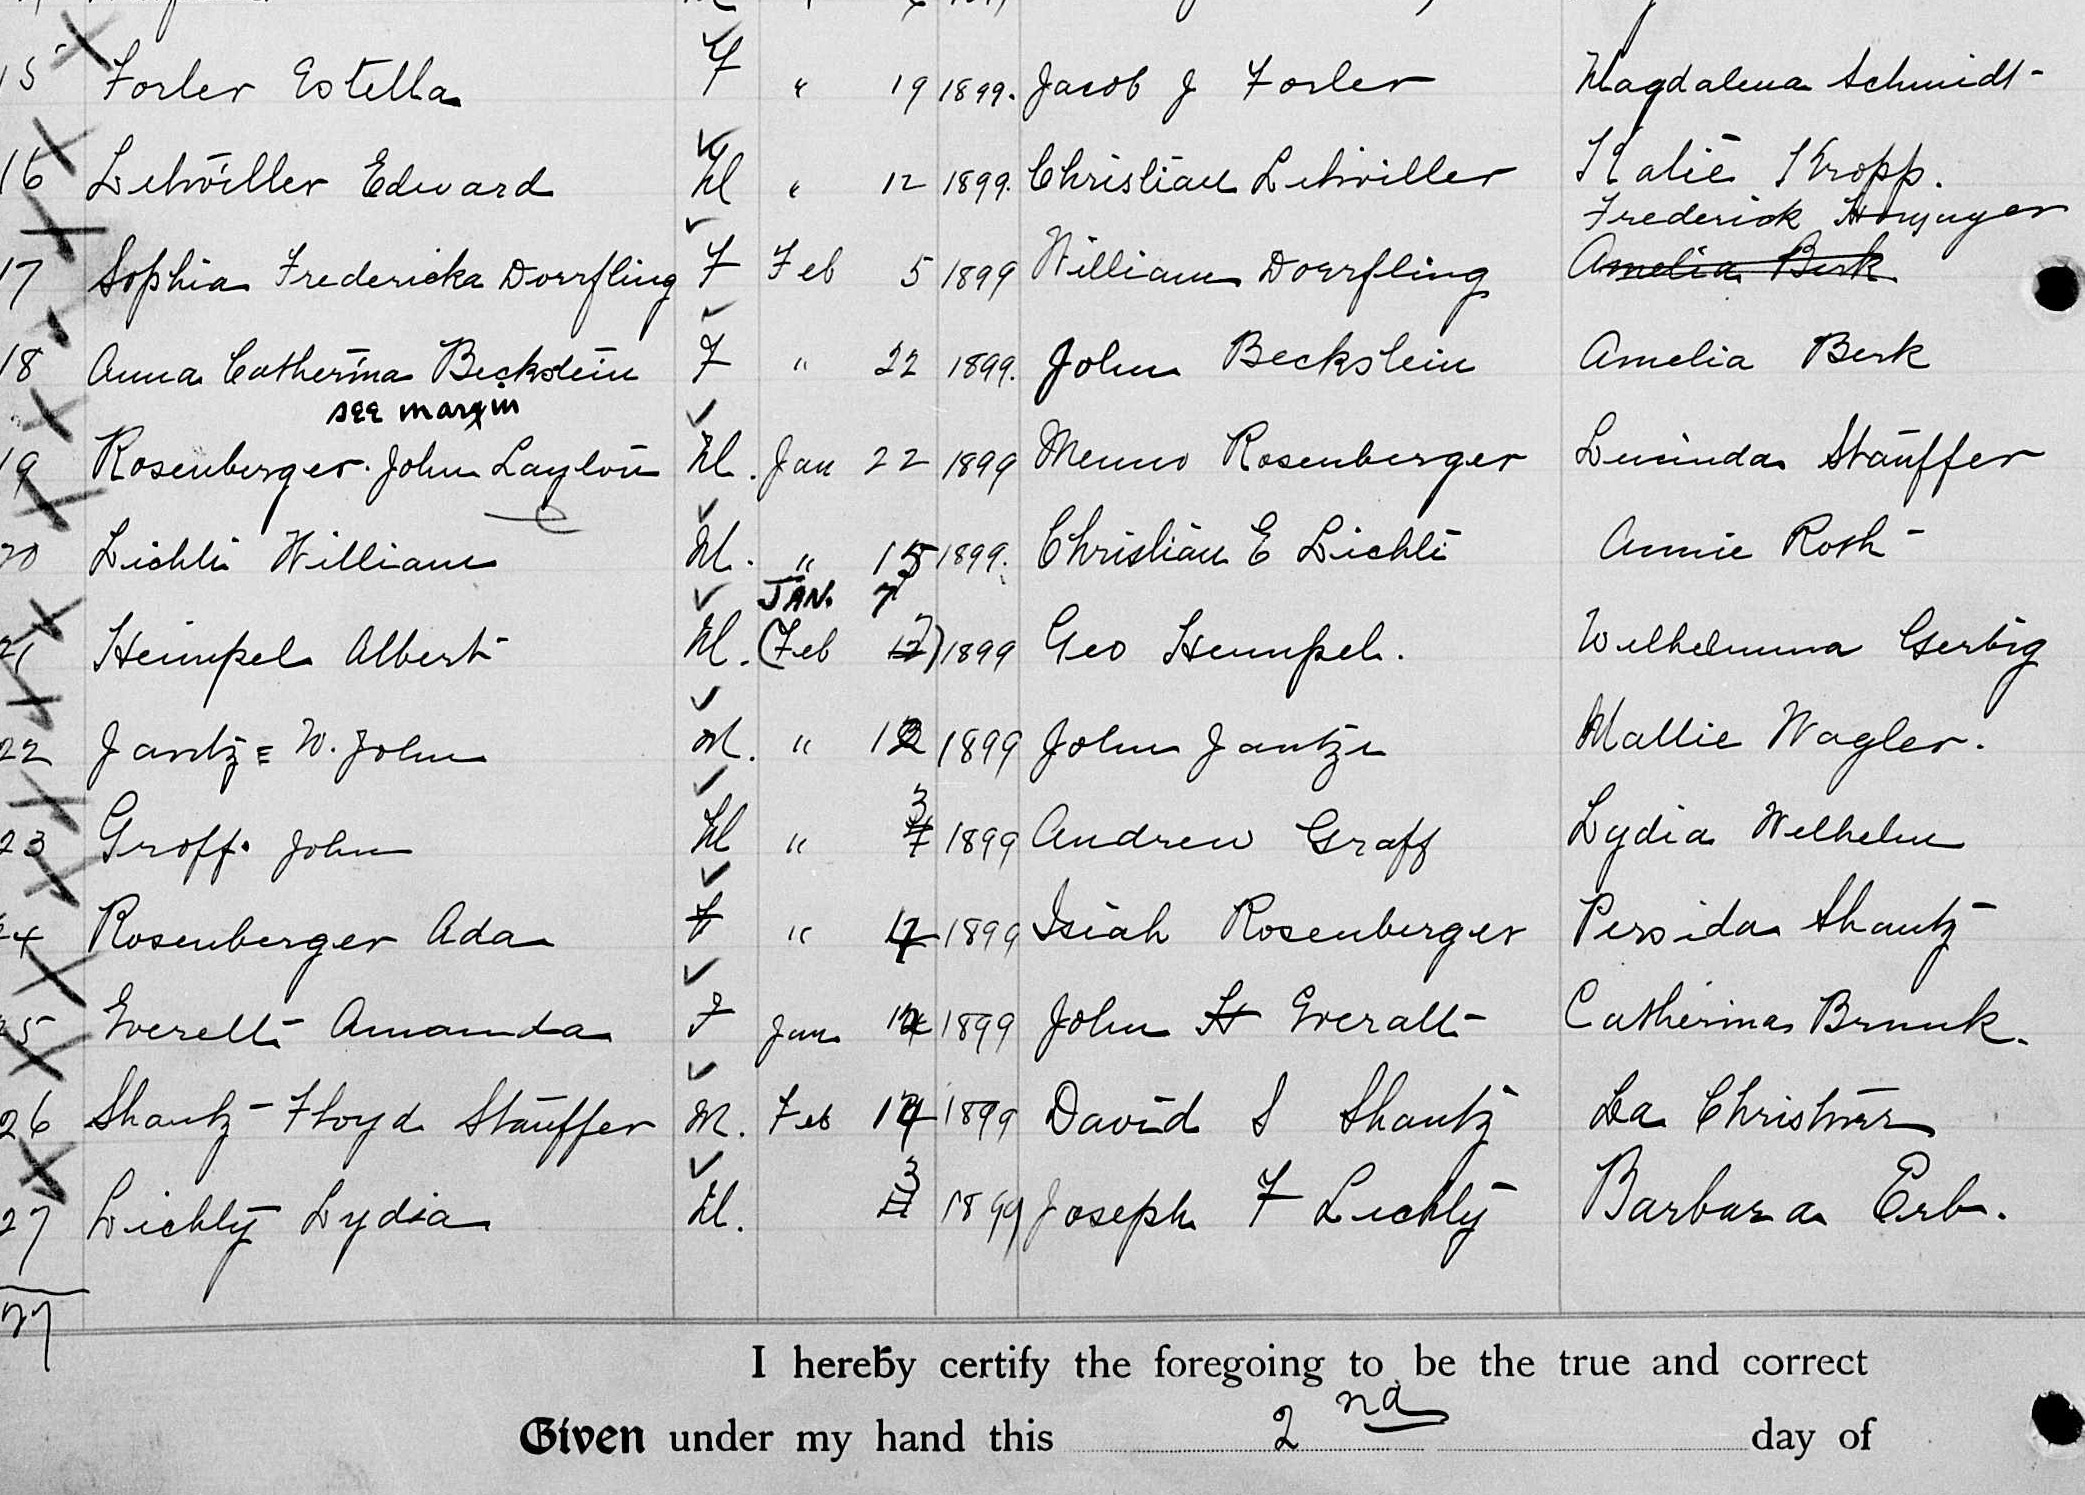 15 Forler Estella F " 19 1899. Jacob J Forler Magdalena Schmidt
16 Litwiller Edward M " 12 1899. Christian Litwiller Katie Kropp.
Frederick
17 Sophia Fredericka Doerfling F Feb 5 1899 William Doerfling Amelia Berk
18 Anna Catherina Beckstein F " 22 1899. John Beckstein Amelia Berk
see margin
19 Rosenberger John Layton M. Jan 22 1899 Menno Rosenberger Lucinda Stauffer
20 Lichti William M. " 15 1899. Christian E Lichti Annie Roth
JAN. 7
21 Heimpel Albert M. (Feb 12) 1899 Geo Heimpel. Wilhelmina Gerbig
22 Jantz E W. John M. " 12 1899 John Jantzi Mallie Wagler.
3
23 Groff. John M " 1899 Andrew Graff Lydia Wilhelm
24 Rosenberger Ada F " 1899 Isiah Rosenberger Persida Shantz
25 Everett Amanda F Jan 1899 John H Everatt Catherina Brunk.
26 Shantz Floyd Stauffer M. Feb 14 1899 David S Shantz Christner
3
27 Lichty Lydia M. 11 1899 Joseph F Lichty Barbara Erb.
27
I hereby certify the foregoing to be the true and correct
Given under my hand this 2nd day of